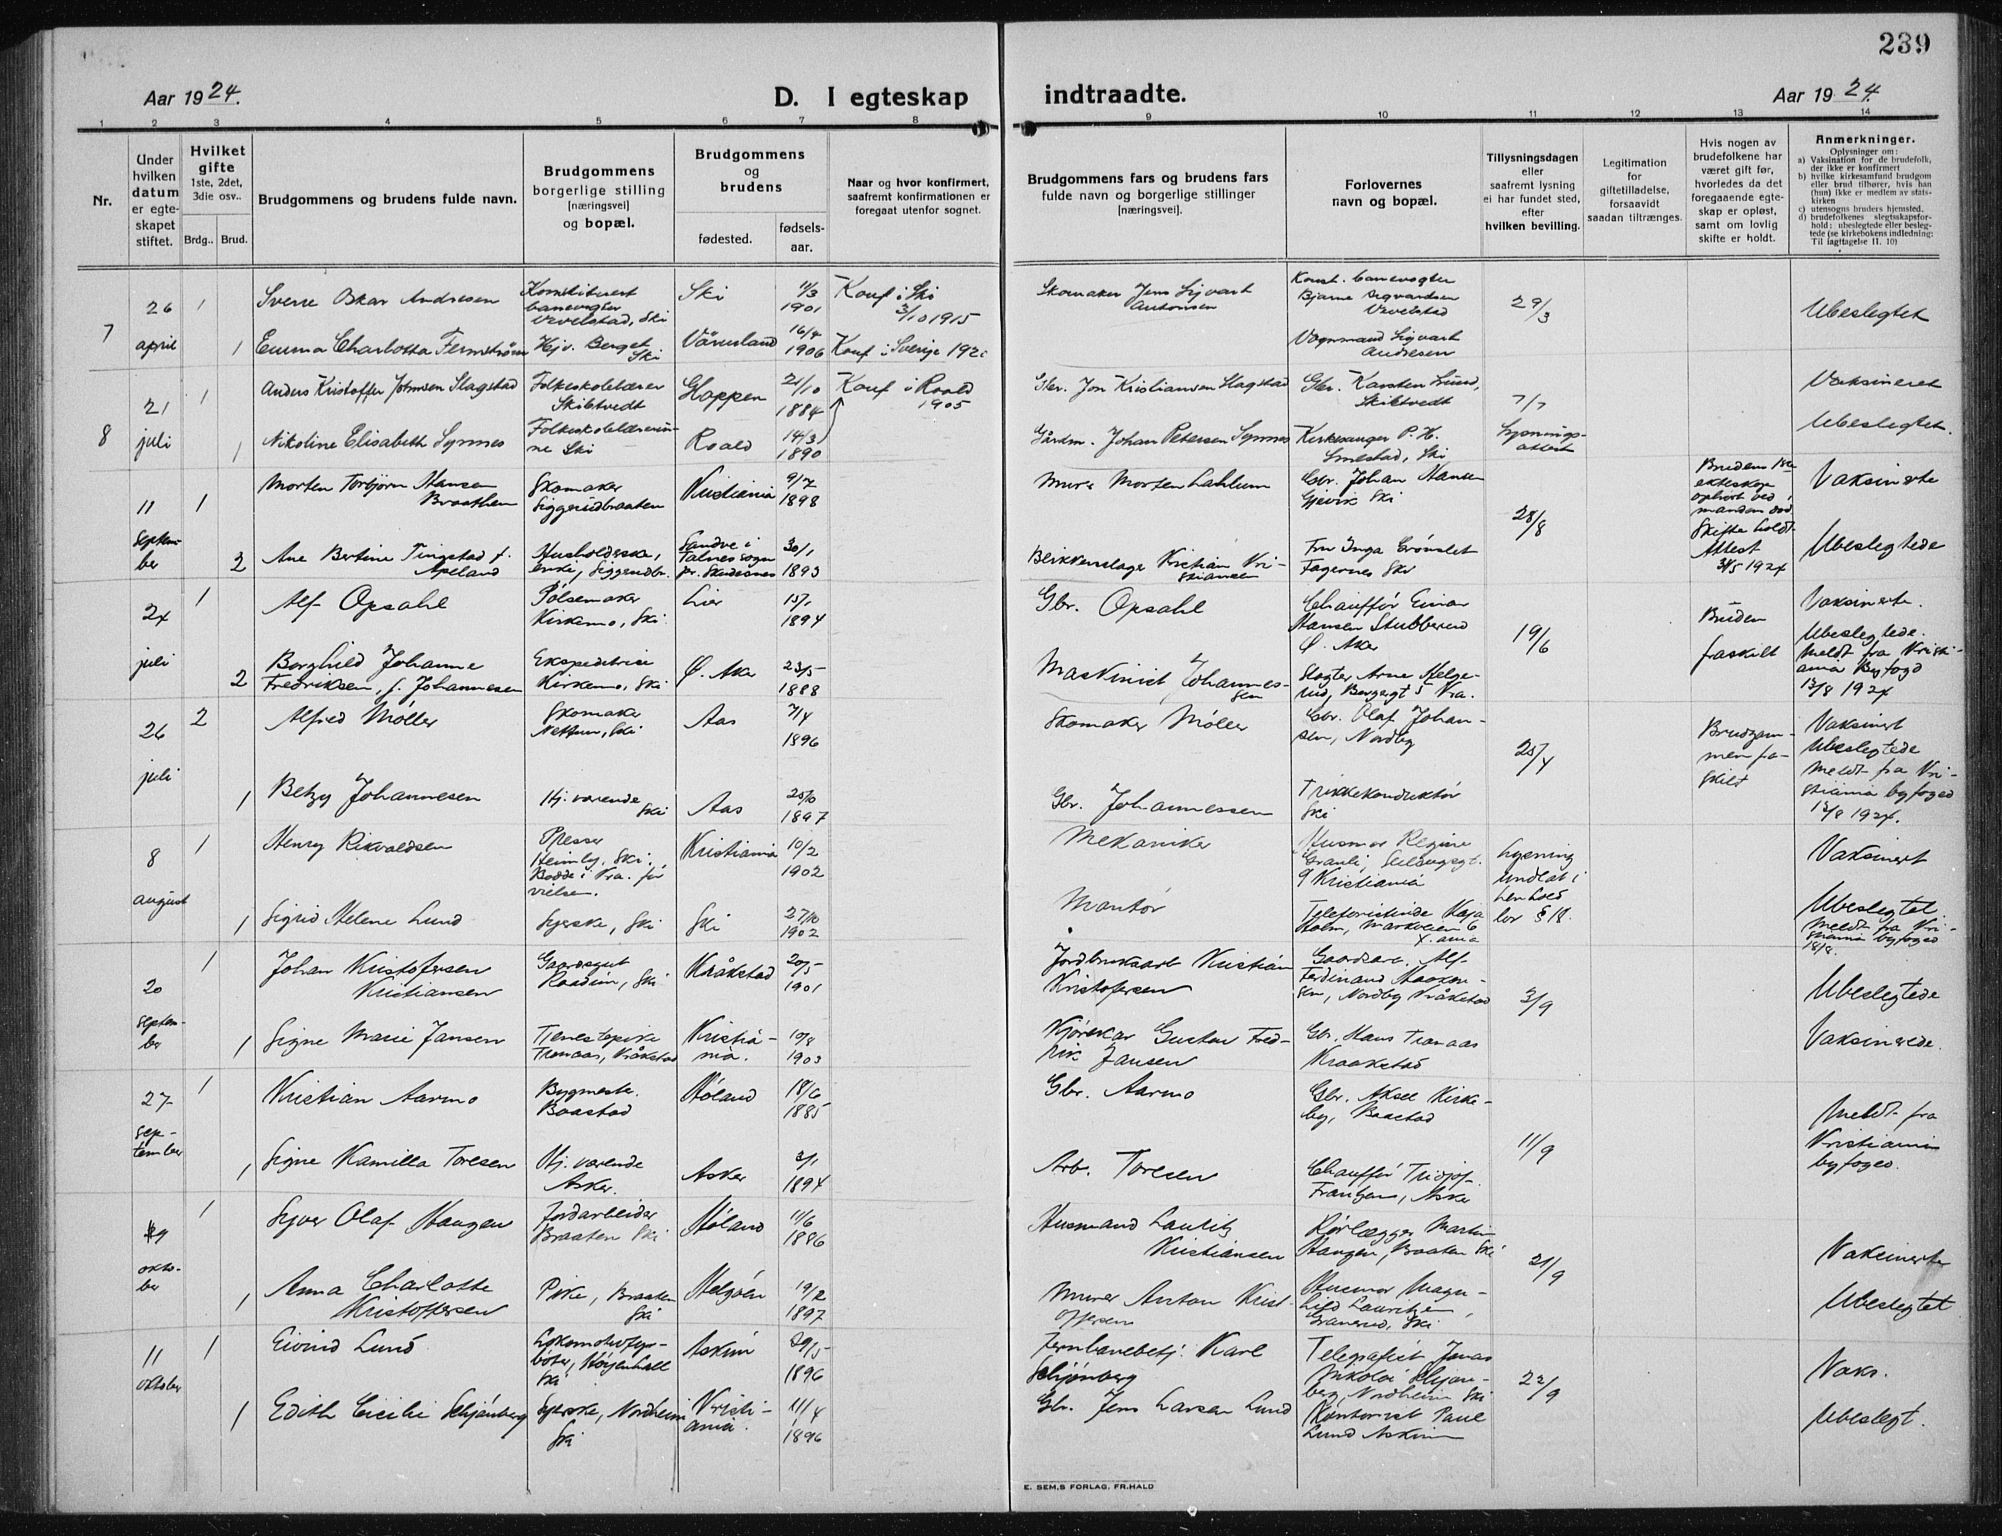 239
Aar 1924.
D. I egteskap indtraadte.
Aar 1924.
1 2 3 4 5 6 7 8 9 10 11 12 13 14
Nr.
Under hvilken datum er egteskapet stiftet.
Hvilket gifte 1ste, 2det, 3die osv..
Brdg.. Brud.
Brudgommens og brudens fulde navn.
Brudgommens borgerlige stilling [næringsvei] og bopæl.
Brudgommens og brudens
fødested.
fødselsaar.
Naar og hvor konfirmert, saafremt konfirmationen er foregaat utenfor sognet.
Brudgommens fars og brudens fars fulde navn og borgerlige stillinger [næringsvei].
Forlovernes navn og bopæl.
Tillysningsdagen eller saafremt lysning ei har fundet sted, efter hvilken bevilling.
Legitimation for giftetilladelse, forsaavidt saadan tiltrænges.
Hvis nogen av brudefolkene har været gift før, hvorledes da det foregaaende egteskap er opløst, samt om lovlig skifte er holdt.
Anmerkninger.
Oplysninger om:
a) Vaksination for de brudefolk, der ikke er konfirmert
b) hvilke kirkesamfund brudgom eller brud tilhører, hvis han (hun) ikke er medlem av statskirken
c) utensogns bruders hjemsted.
d) brudefolkenes slegtsskapsforhold: ubeslegtede eller beslegtede (se kirkebokens indledning: Til iagttagelse II. 10)
7
26 april
1
Sverre Oskar Andresen
Konstituert banevogter Vevelstad, Ski
Ski
11/3 1901
Konf. i Ski 3/10 1915
Skomaker Jens Sigvart Antonsen
Konst. banevogter Bjarne Sigvardsen Vevelstad
29/3
Ubeslegtet
1
Emma Charlotta Fernstrøm
Hjv. Berget Ski
Värmland
16/4 1906
Konf i Sverige 192
Vognmand Sigvart Andresen
8
21 juli
1
Anders Kristoffer Johnsen Slagstad
Folkeskolelærer Skibtvedt
Hoppen
21/10 1884
Konf i Roald 1905
Gbr. Jon Kristiansen Slagstad
Gbr. Karsten Lund, Skibtvedt
7/7
Vaksineret
1
Nikoline Elisabeth Synnes
Folkeskolelærerinne Ski
Roald
14/3 1890
Gårdm. Johan Petersen Synnes
Kirkesanger P. H. Smestad, Ski
Lysningsattest
Ubeslegtet.
11 september
1
Morten Torbjørn Hansen Braathen
Skomaker Siggerudbraaten
Kristiania
9/7 1898
Murer Morten Lahlum
Gbr. Johan Hansen Gjevik Ski
28/8
Brudens 1ste ekteskap ophørt ved mandens død. Skifte holdt. Attest 31/5 1924
Vaksinerte
2
Ane Bertine Tingstad f. Apeland
Husholderske, enke, Siggerudbr.
Sandve i Falnes sogn pr. Skudesnes
30/1 1893
Blikkenslager Kristian Kristiansen
Fru Inga Grønslet Fagernes Ski
Ubeslegtede
24 juli
1
Alf Opsahl
Pølsemaker Kirkemo, Ski
Lier
15/1 1894
Gbr. Opsahl
Chauffør Einar Hansen Stubberud Ø. Aker
19/6
Bruden fraskilt
Vaksinerte.
2
Borghild Johanne Fredriksen, f. Johannesen
Ekspeditrise Kirkemo, Ski
Ø. Aker
23/5 1888
Maskinist Johannessen
Slagter Arne Melgerud, Bergsgt 5 Kra.
Ubeslegtede. Meldt fra Kristiania Byfogd 13/8 1924
26 juli
2
Alfred Møller
Skomaker Nettum, Ski
Aas
7/4 1896
Skomaker Møller
Gbr. Olaf Johansen, Nordby
25/4
Brudgommen fraskilt
Vaksinert
1
Betzy Johannesen
Hj. værende Ski
Aas
25/10 1897
Gbr. Johannessen
Trikkekonduktør Ski
Ubeslegtede Meldt fra Kristiania byfoged 13/8 1924.
8 august
1
Henry Rikvaldsen
Presser Heimly, Ski. Bodde i Kra. før vielsen.
Kristiania
10/2 1902
Mekaniker
Husmor Regine Granli, Seilduksgt. 9 Kristiania
Lysning undlat i henhold lov § 18.
Vaksinert
1
Sigrid Helene Lund
Syerske, Ski
Ski
27/10 1902
Montør
Telefonistinde Kaja Holm, Markveien 6 X.ania
Ubeslegtet. Meldt fra Kristiania byfoged 18/8.
20 september
1
Johan Kristofersen Kristiansen
Gaardsgut Raadim, Ski
Kråkstad
20/5 1901
Jordbruksarb Kristian Kristofersen
Gaardsarb. Alf Ferdinand Haakonsen, Nordby Kråkstad
3/9
Ubeslegtede
1
Signe Marie Jansen
Tjenestepike Tranaas, Kråkstad
Kristiania.
10/8 1903
Kjørekar Gustav Fredrik Jansen
Gbr. Hans Tranaas Kraakstad
Vaksinerede.
27 september
1
Kristian Aarmo
Bygmester. Baastad
Høland
18/6 1885
Gbr. Aarmo
Gbr. Aksel Kirkeby, Baastad
11/9
Meldt fra Kristiania byfoged.
1
Signe Kamilla Toresen
Hj. værende Asker.
Asker
2/1 1894
Arb. Toresen
Chauffør Tridjof Frantzen, Asker
9 oktober
1
Syver Olaf Haugen
Jordarbeider Braaten Ski
Høland
11/6 1886
Husmand Lauritz Kristiansen
Rørlægger Martin Haugen, Braaten Ski
21/9
Vaksinerte
1
Anna Charlotte Kristoffersen
Pike, Braaten Ski
Helgøen
19/2 1897
Murer Anton Kristoffersen
Husmor Magnhild Lauritzen, Granerud, Ski
Ubeslegtet
11 oktober
1
Eivind Lund
Lokomotivfyrbøter, Høgenhall Ski
Askim
29/5 1896
Jernbanebetj. Karl Schjønberg
Telegrafist Jonas Nikolai Schjønberg, Nordheim Ski
22/9
Vaks.
1
Edith Cicilie Schjønberg
Syerske, Nordheim Ski
Kristiania.
11/4 1896
Gbr. Jens Larsen Lund
Kontorist Paul Lund Askim
Ubeslegt.
E. SEM,S FORLAG, FR.HALD